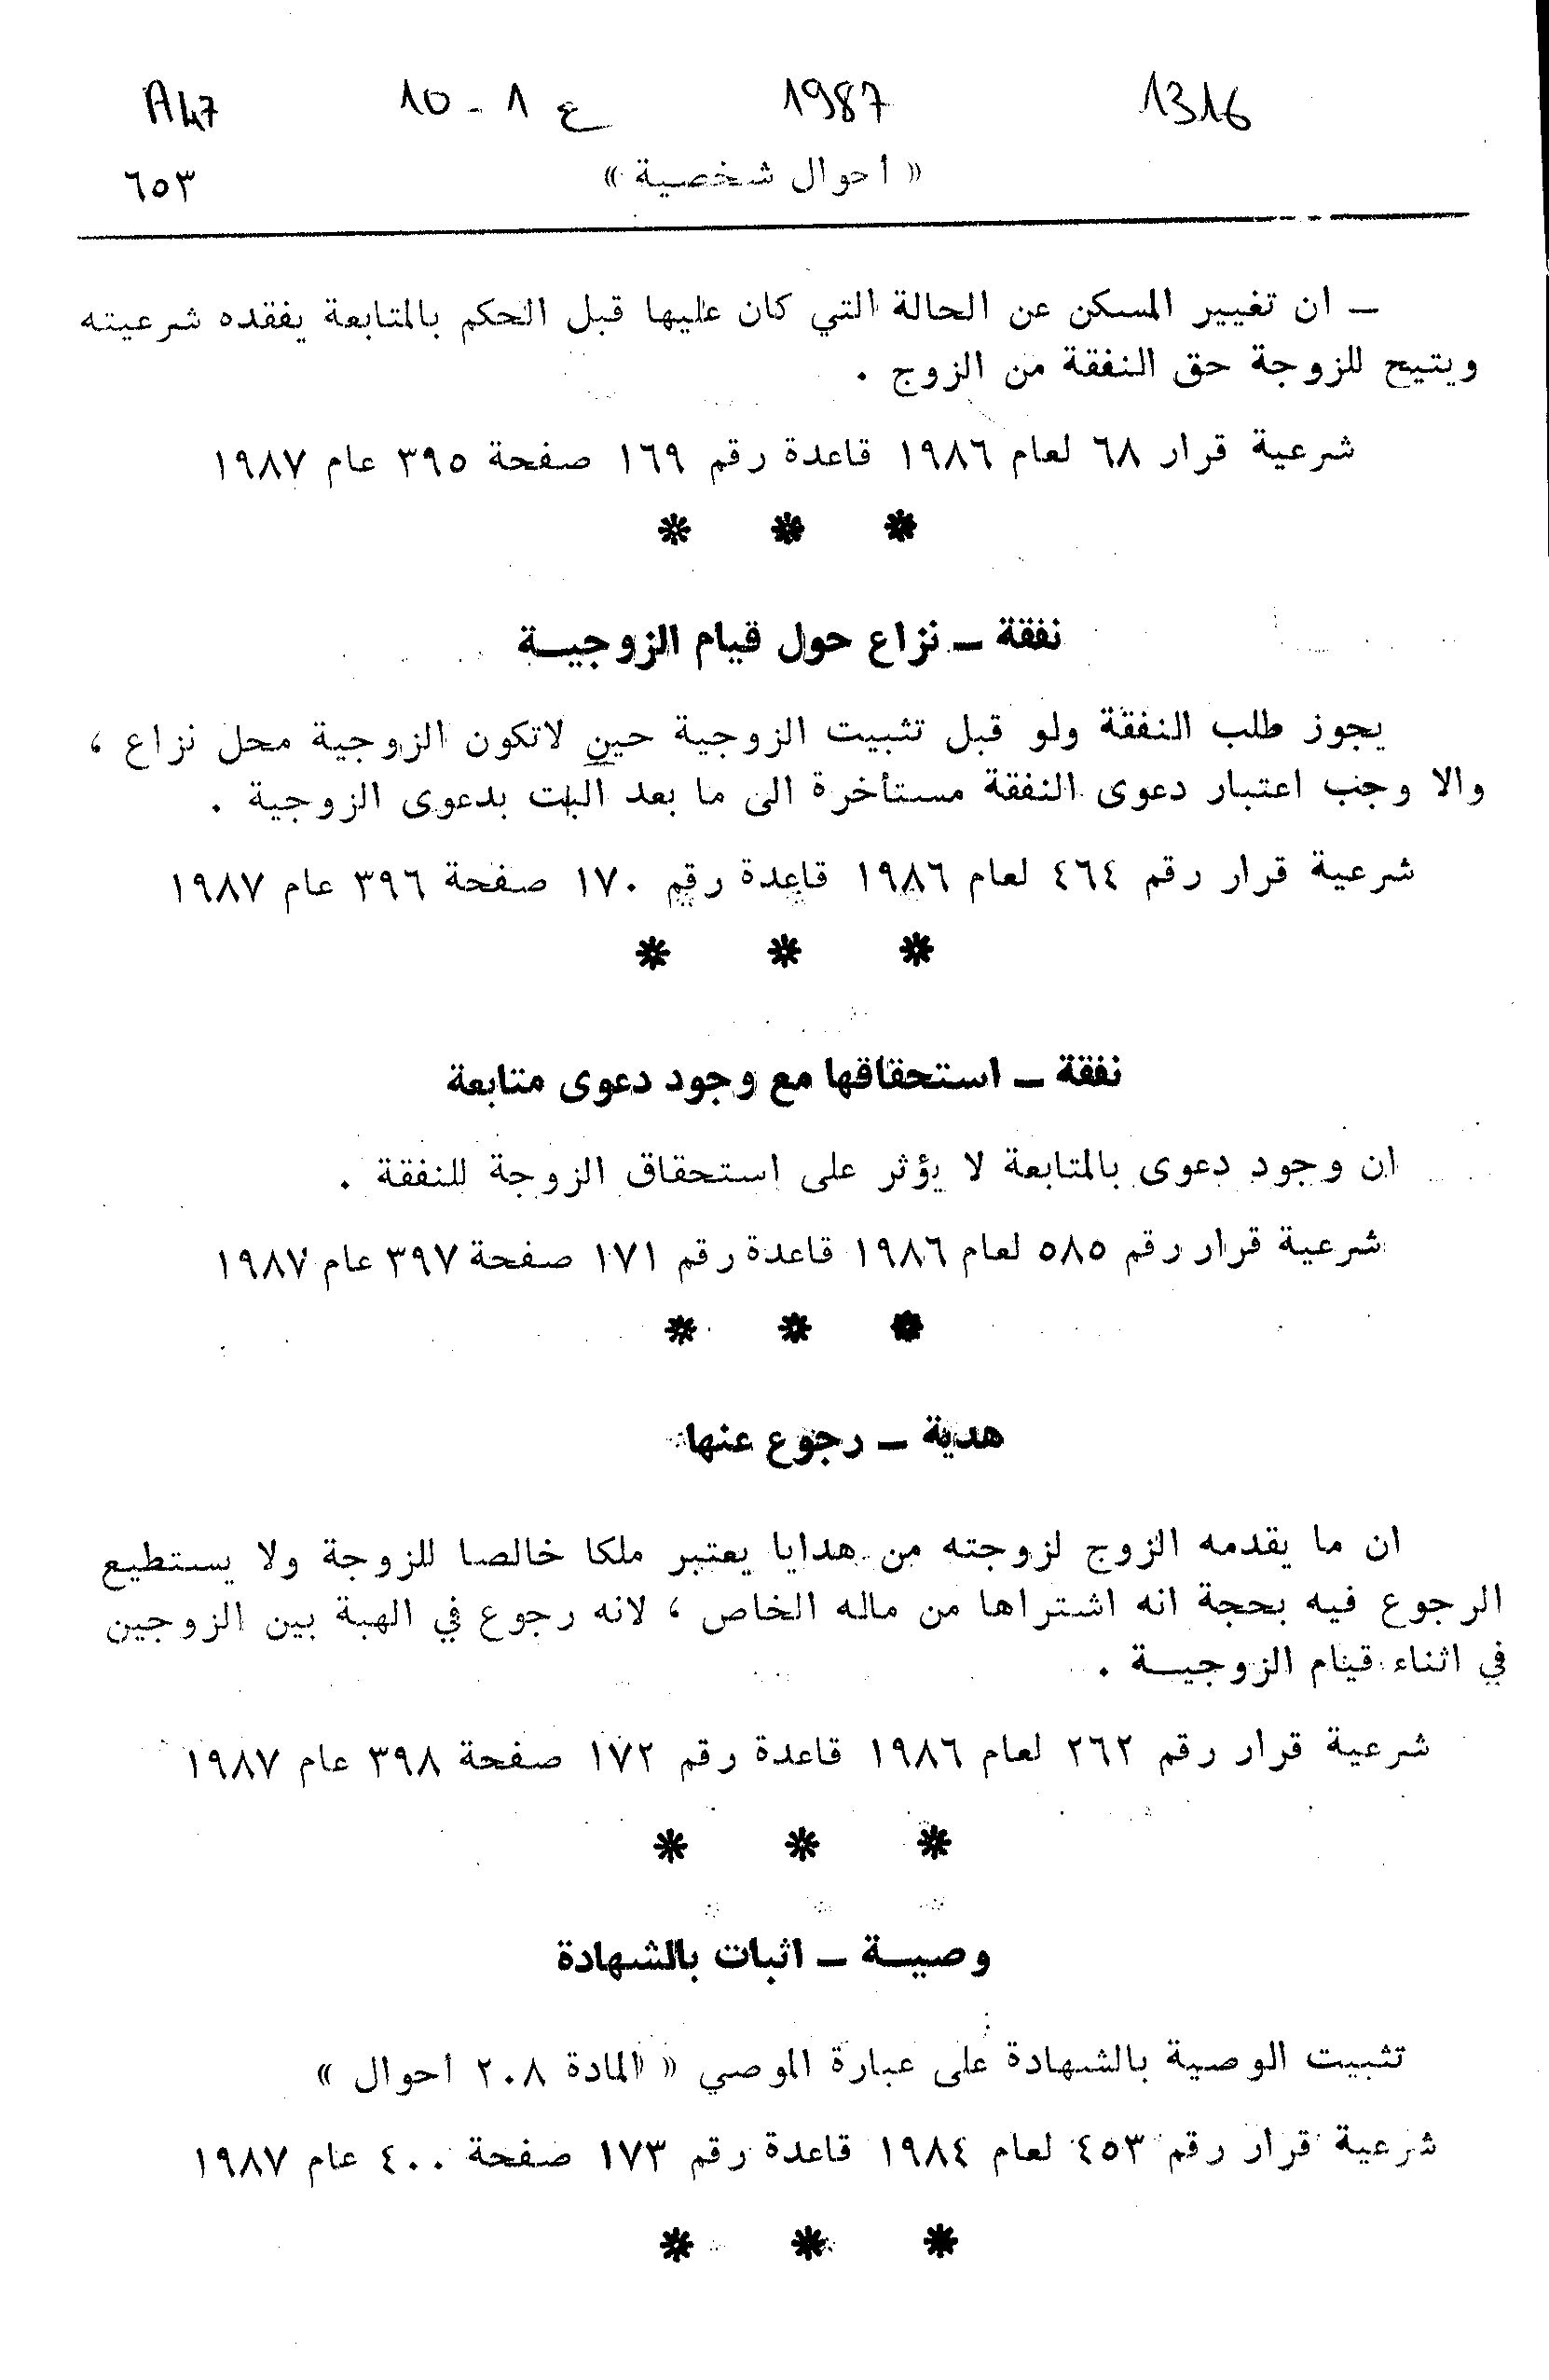 1316 1987 ع 1 - 10 A47
« احوال شخصية » ٦٥٣
ــ ان تغيير المسكن عن الحالة التي كان عليها قبل الحكم بالمتابعة يفقده شرعيته
ويتيح للزوجة حق النفقة من الزوج .
شرعية قرار ٦٨ لعام ١٩٨٦ قاعدة رقم ١٦٩ صفحة ٣٩٥ عام ١٩٨٧
* * *
نفقة ــ نزاع حول قيام الزوجيــة
يجوز طلب النفقة ولو قبل تثبيت الزوجية حين لاتكون الزوجية محل نزاع ،
والا وجب اعتبار دعوى النفقة مستأخرة الى ما بعد البت بدعوى الزوجية .
شرعية قرار رقم ٤٦٤ لعام ١٩٨٦ قاعدة رقم ١٧٠ صفحة ٣٩٦ عام ١٩٨٧
* * *
نفقة ــ استحقاقها مع وجود دعوى متابعة
ان وجود دعوى بالمتابعة لا يؤثر على استحقاق الزوجة للنفقة .
شرعية قرار رقم ٥٨٥ لعام ١٩٨٦ قاعدة رقم ١٧١ صفحة ٣٩٧ عام ١٩٨٧
* * *
هدية ــ رجوع عنها
ان ما يقدمه الزوج لزوجته من هدايا يعتبر ملكا خالصا للزوجة ولا يستطيع
الرجوع فيه بحجة انه اشتراها من ماله الخاص ، لانه رجوع في الهبة بين الزوجين
في اثناء قيام الزوجيــة .
شرعية قرار رقم ٢٦٢ لعام ١٩٨٦ قاعدة رقم ١٧٢ صفحة ٣٩٨ عام ١٩٨٧
* * *
وصيــة ــ اثبات بالشهادة
تثبيت الوصية بالشهادة على عبارة الموصي « المادة ٢٠٨ أحوال »
شرعية قرار رقم ٤٥٣ لعام ١٩٨٤ قاعدة رقم ١٧٣ صفحة ٤٠٠ عام ١٩٨٧
* * *